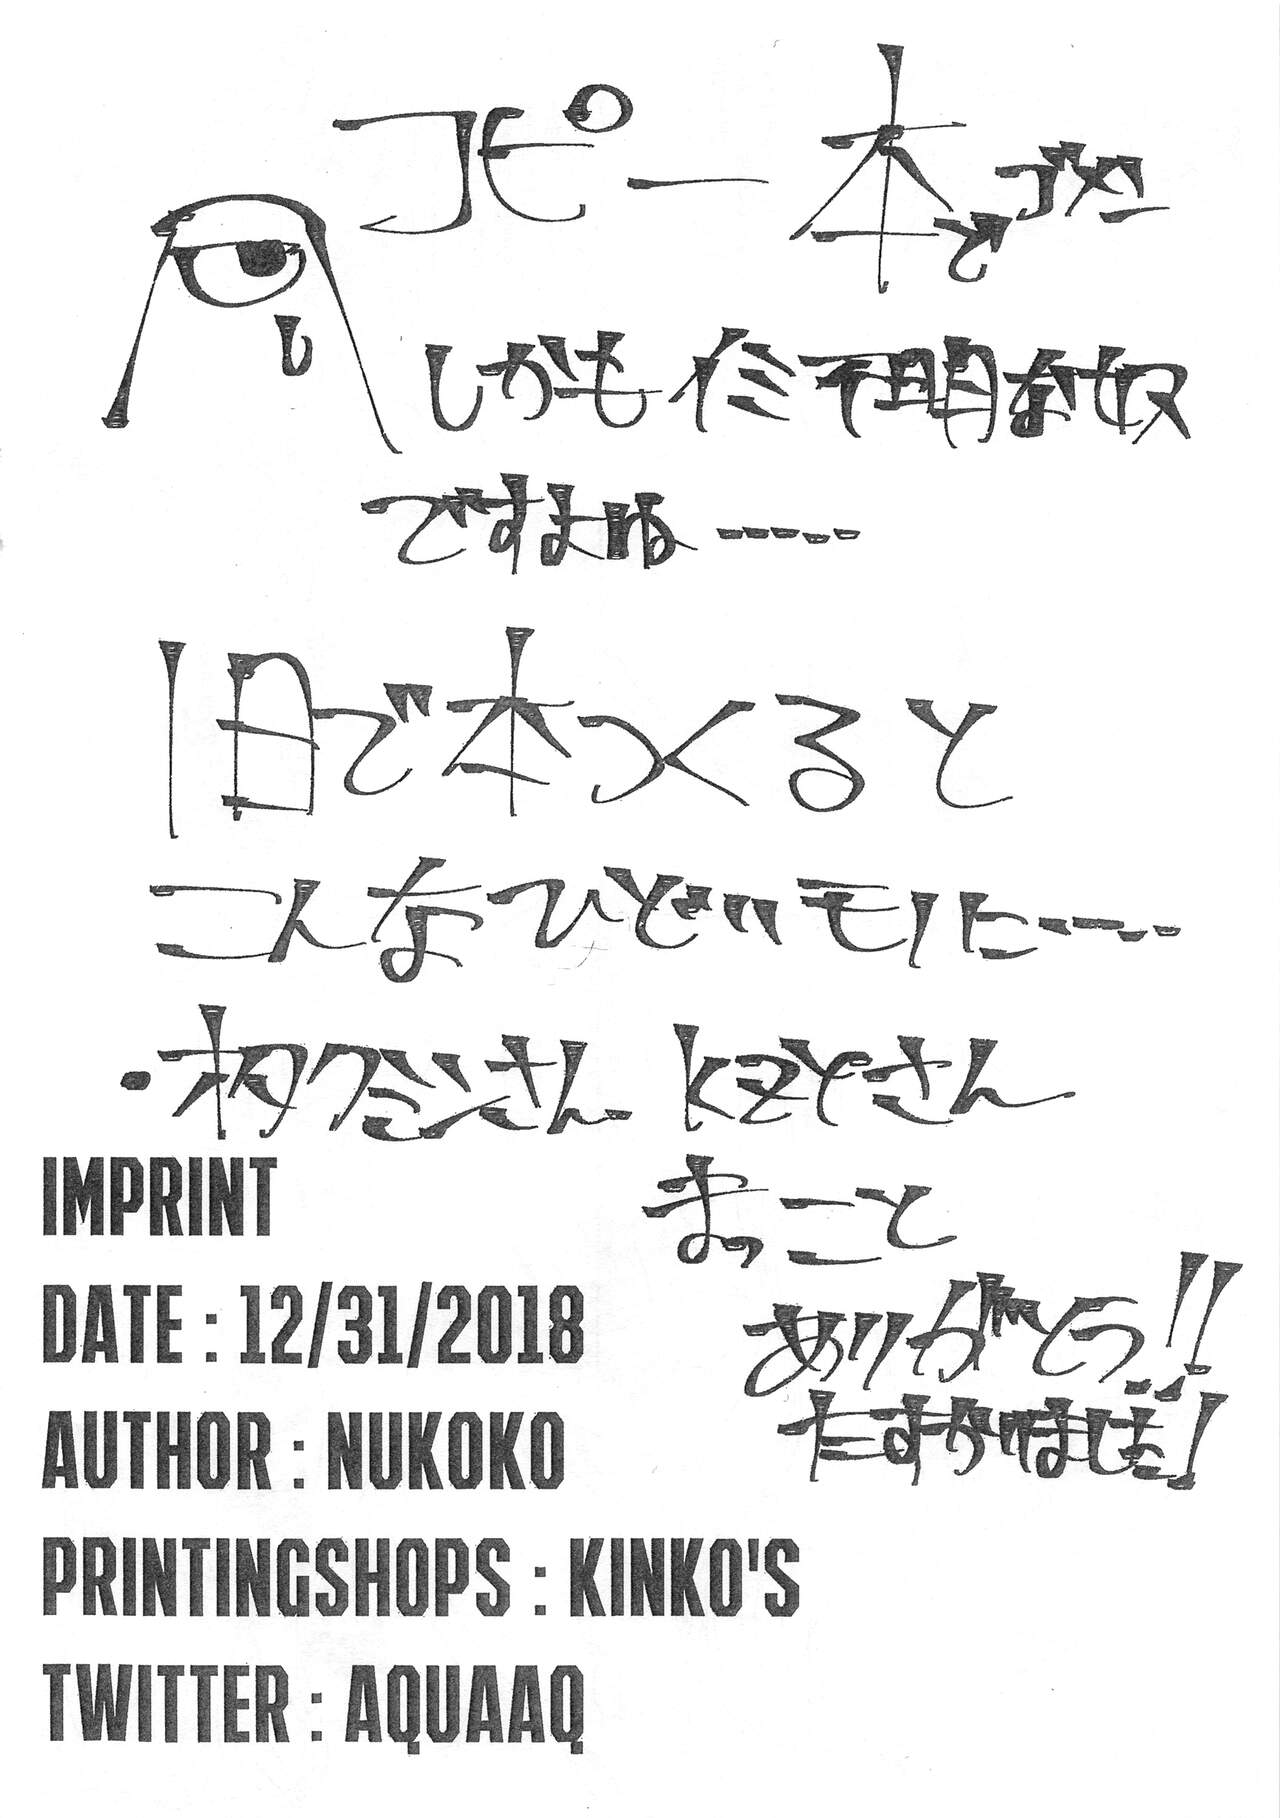 コピー本
しかもイミ不明な奴
ですよね-----
1日で本つくると
こんなひどいモノに-----
さん さん
まっこと
ありがとう!!
たすかりました!
IMPRINT
DATE : 12/31/2018
AUTHOR : NUKOKO
PRINTINGSHOPS : KINKO'S
TWITTER : AQUAAQ